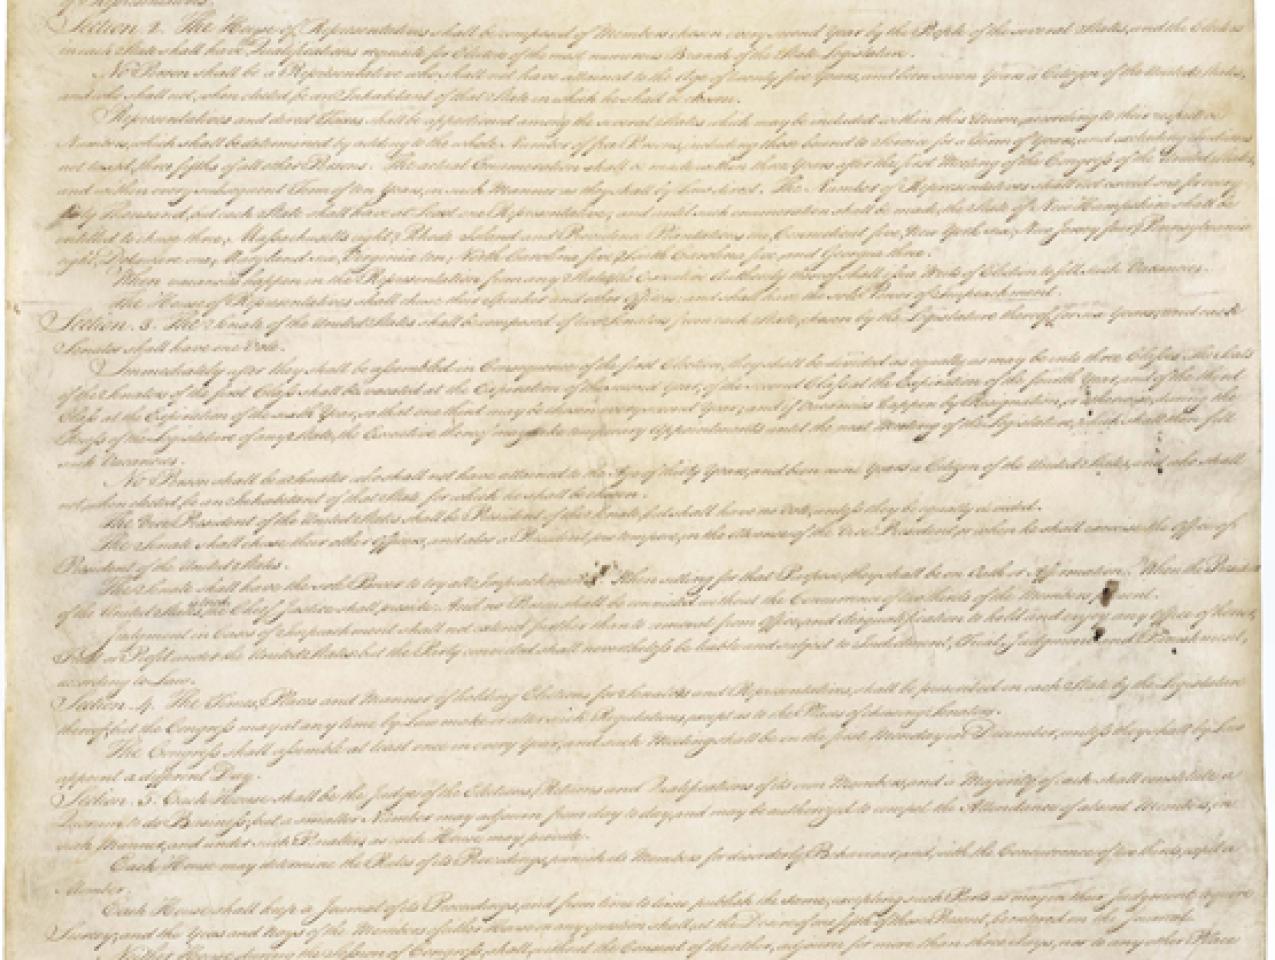 of Representatives.
Section. 2. The House of Representatives shall be composed of Members chosen every second Year by the People of the several States, and the Electors
in each State shall have Qualifications requisite for Electors of the most numerous Branch of the State Legislature.
No Person shall be a Representative who shall not have attained to the Age of twenty five Years, and been seven Years a Citizen of the United States,
and who shall not, when elected, be an Inhabitant of that State in which he shall be chosen.
Representatives and direct Taxes shall be apportioned among the several States which may be included within this Union, according to their respective
Numbers, which shall be determined by adding to the whole Number of free Persons, including those bound to Service for a Term of Years, and excluding Indians
not taxed, three fifths of all other Persons. The actual Enumeration shall be made within three Years after the first Meeting of the Congress of the United States,
and within every subsequent Term of ten Years, in such Manner as they shall by Law direct. The Number of Representatives shall not exceed one for every
thirty Thousand, but each State shall have at Least one Representative; and until such enumeration shall be made, the State of New Hampshire shall be
entitled to chuse three, Massachusetts eight, Rhode Island and Providence Plantations one, Connecticut five, New York six, New Jersey four, Pennsylvania
eight, Delaware one, Maryland six, Virginia ten, North Carolina five, South Carolina five, and Georgia three.
When vacancies happen in the Representation from any State, the Executive Authority thereof shall issue Writs of Election to fill such Vacancies.
The House of Representatives shall chuse their Speaker and other Officers; and shall have the sole Power of Impeachment.
Section. 3. The Senate of the United States shall be composed of two Senators from each State, chosen by the Legislature thereof, for six Years; and each
Senator shall have one Vote.
Immediately after they shall be assembled in Consequence of the first Election, they shall be divided as equally as may be into three Classes. The Seats
of the Senators of the first Class shall be vacated at the Expiration of the second Year, of the second Class at the Expiration of the fourth Year, and of the third
Class at the Expiration of the sixth Year, so that one third may be chosen every second Year; and if Vacancies happen by Resignation, or otherwise, during the
Recess of the Legislature of any State, the Executive thereof may make temporary Appointments until the next Meeting of the Legislature, which shall then fill
such Vacancies.
No Person shall be a Senator who shall not have attained to the Age of thirty Years, and been nine Years a Citizen of the United States, and who shall
not, when elected, be an Inhabitant of that State for which he shall be chosen.
The Vice President of the United States shall be President of the Senate, but shall have no Vote, unless they be equally divided.
The Senate shall chuse their other Officers, and also a President pro tempore, in the Absence of the Vice President, or when he shall exercise the Office of
President of the United States.
The Senate shall have the sole Power to try all Impeachments. When sitting for that Purpose, they shall be on Oath or Affirmation. When the President
of the United States is tried, the Chief Justice shall preside: And no Person shall be convicted without the Concurrence of two thirds of the Members present.
Judgment in Cases of Impeachment shall not extend further than to removal from Office, and disqualification to hold and enjoy any Office of honor,
Trust or Profit under the United States: but the Party convicted shall nevertheless be liable and subject to Indictment, Trial, Judgment and Punishment,
according to Law.
Section. 4. The Times, Places and Manner of holding Elections for Senators and Representatives, shall be prescribed in each State by the Legislature
thereof; but the Congress may at any time by Law make or alter such Regulations, except as to the Places of chusing Senators.
The Congress shall assemble at least once in every Year, and such Meeting shall be on the first Monday in December, unless they shall by Law
appoint a different Day.
Section. 5. Each House shall be the Judge of the Elections, Returns and Qualifications of its own Members, and a Majority of each shall constitute a
Quorum to do Business; but a smaller Number may adjourn from day to day, and may be authorized to compel the Attendance of absent Members, in
such Manner, and under such Penalties as each House may provide.
Each House may determine the Rules of its Proceedings, punish its Members for disorderly Behaviour, and, with the Concurrence of two thirds, expel a
Member.
Each House shall keep a Journal of its Proceedings, and from time to time publish the same, excepting such Parts as may in their Judgment require
Secrecy; and the Yeas and Nays of the Members of either House on any question shall, at the Desire of one fifth of those Present, be entered on the Journal.
Neither House, during the Session of Congress, shall, without the Consent of the other, adjourn for more than three days, nor to any other Place